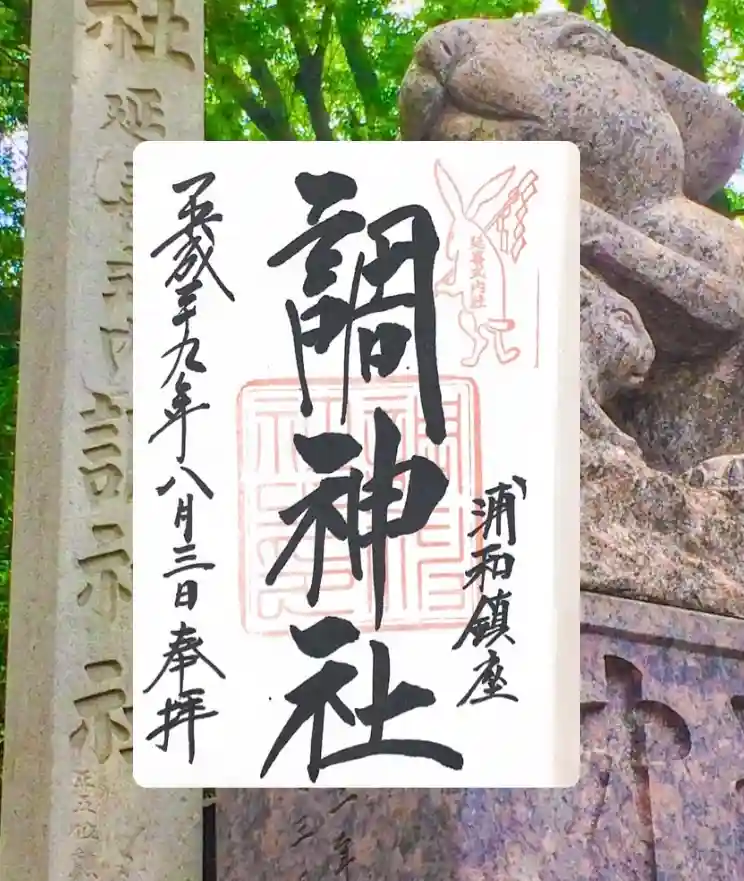 延喜式内社
浦和鎮座
調神社
平成二十九年八月三日奉拝
社
延喜式内調神社